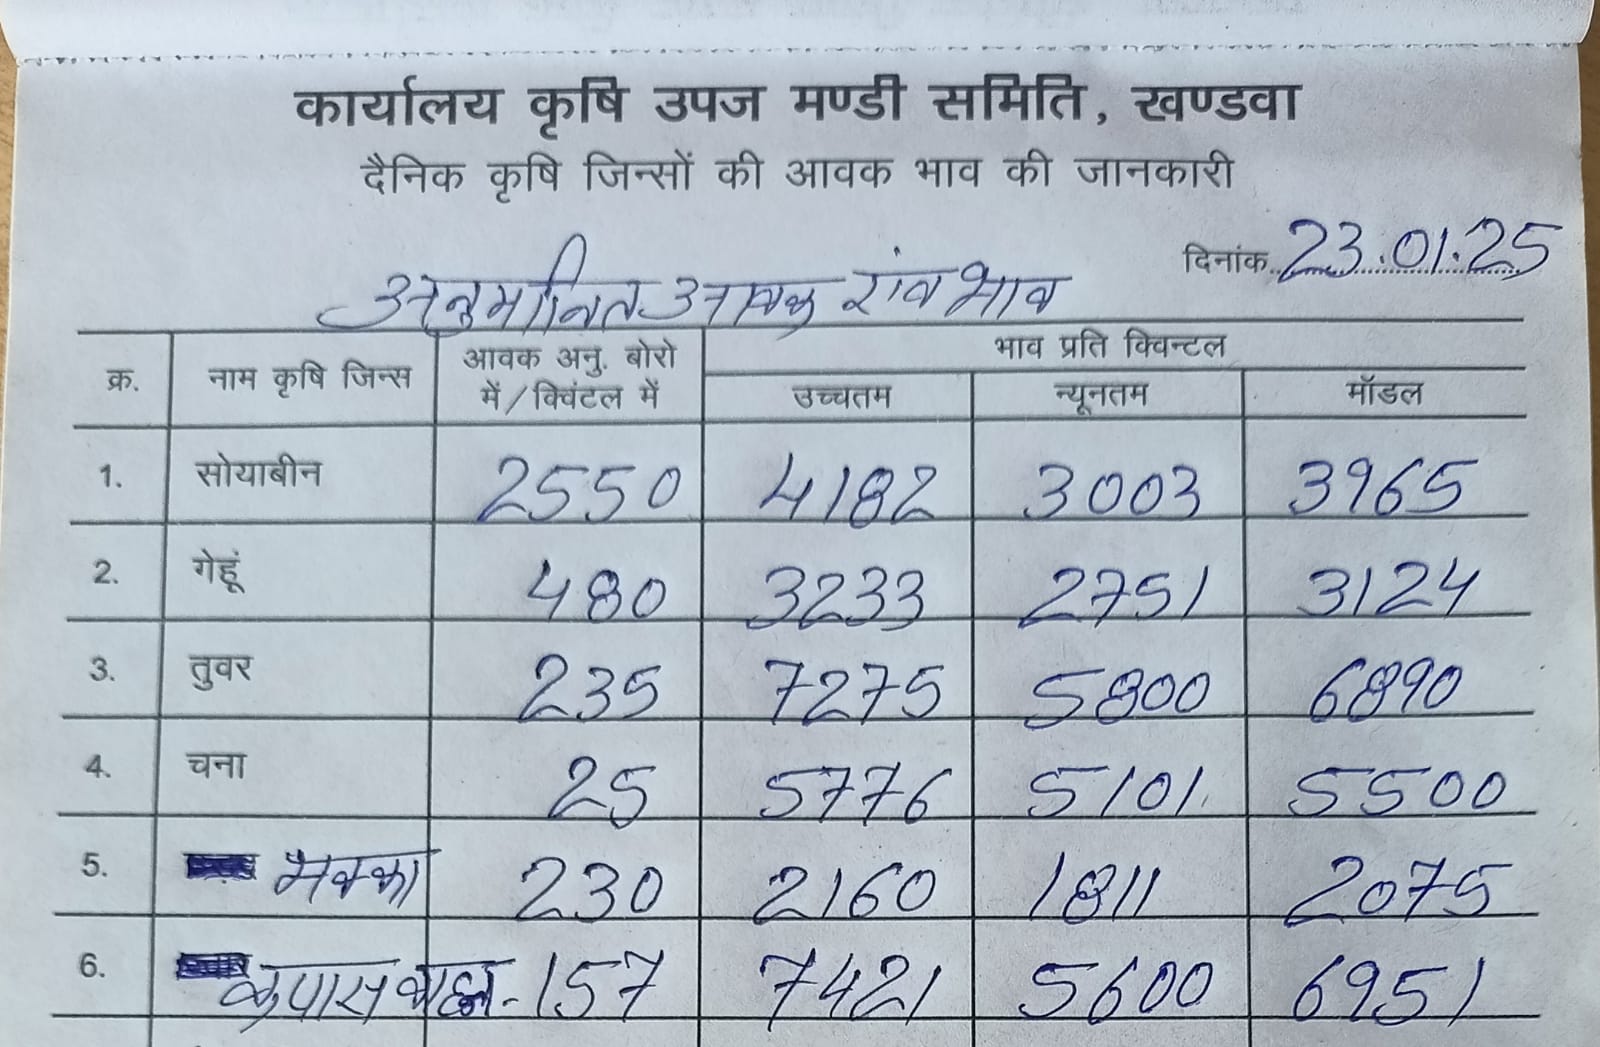 कार्यालय कृषि उपज मण्डी समिति, खण्डवा
दैनिक कृषि जिन्सों की आवक भाव की जानकारी
दिनांक 23.01.25
अनुमानित आवक एंव भाव
क्र. नाम कृषि जिन्स आवक अनु. बोरो में/क्विंटल में भाव प्रति क्विन्टल
उच्चतम न्यूनतम मॉडल
1. सोयाबीन 2550 4182 3003 3965
2. गेहूं 480 3233 2751 3124
3. तुवर 235 7275 5800 6890
4. चना 25 5776 5101 5500
5. मक्का 230 2160 1811 2075
6. कपास वाहन - 157 7421 5600 6951